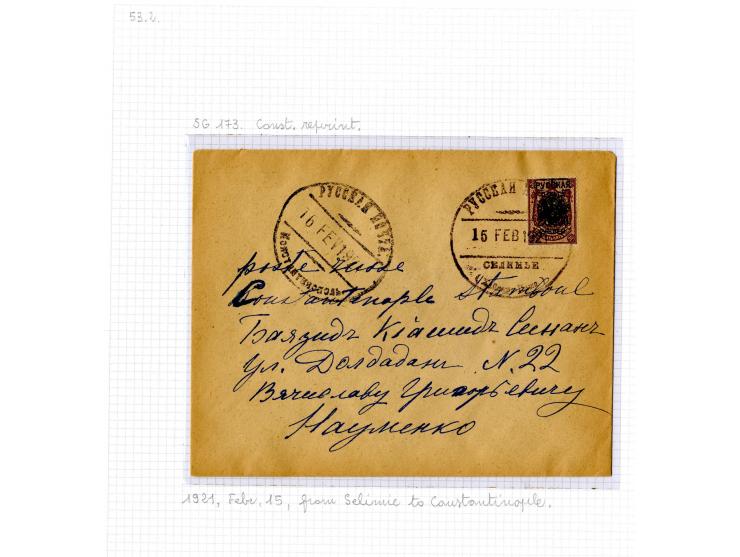 53.2.
SG 173. Const. reprint.
РУССКАЯ ПОЧТА.
16 FEV 19
КОНСТАНТИНОПОЛЬ
РУССКАЯ
15 FEB 192
СЕЛИМЬЕ
РУССКАЯ
poste russe
Constantinople Stamboul
Баязидъ Кіамидъ Синанъ
ул. Долдаданъ N. 22
Вячиславу Григорьевичу
Науменко
1921, Febr. 15, from Selimie to Constantinople.